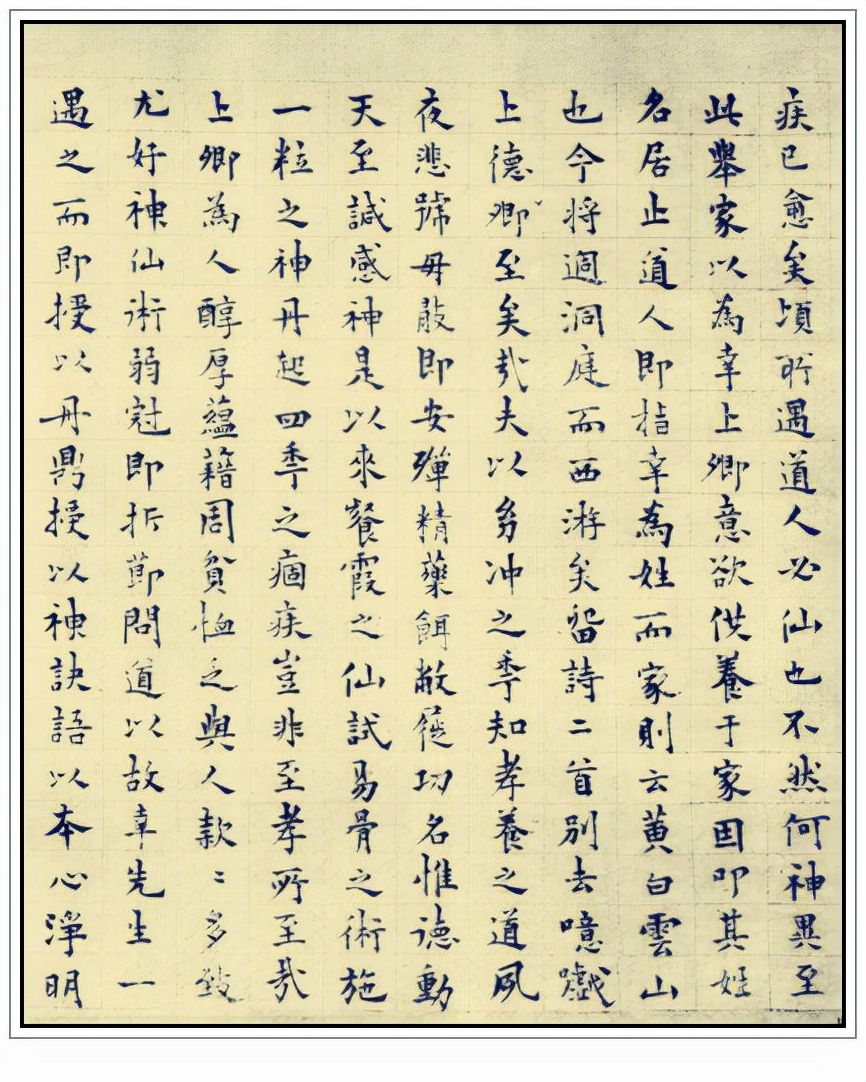 疾已愈矣頃所遇道人必仙也不然何神異至
此舉家以為幸上卿意欲供養于家因叩其姓
名居止道人即指幸為姓而家則云黃白雲山
也今將過洞庭而西游矣留詩二首別去噫戲
上德卿至矣哉夫以幼冲之秊知孝養之道夙
夜悲號毋敢即安殫精藥餌敝蓰功名惟德動
天至諴感神是以來餐霞之仙試易骨之術施
一粒之神丹起四秊之痼疾豈非至孝所至哉
上卿為人醇厚蘊藉周貧恤乏與人款〻多致
尤好神仙術弱冠即折節問道以故幸先生一
遇之而即授以丹鼎授以神訣語以本心淨明